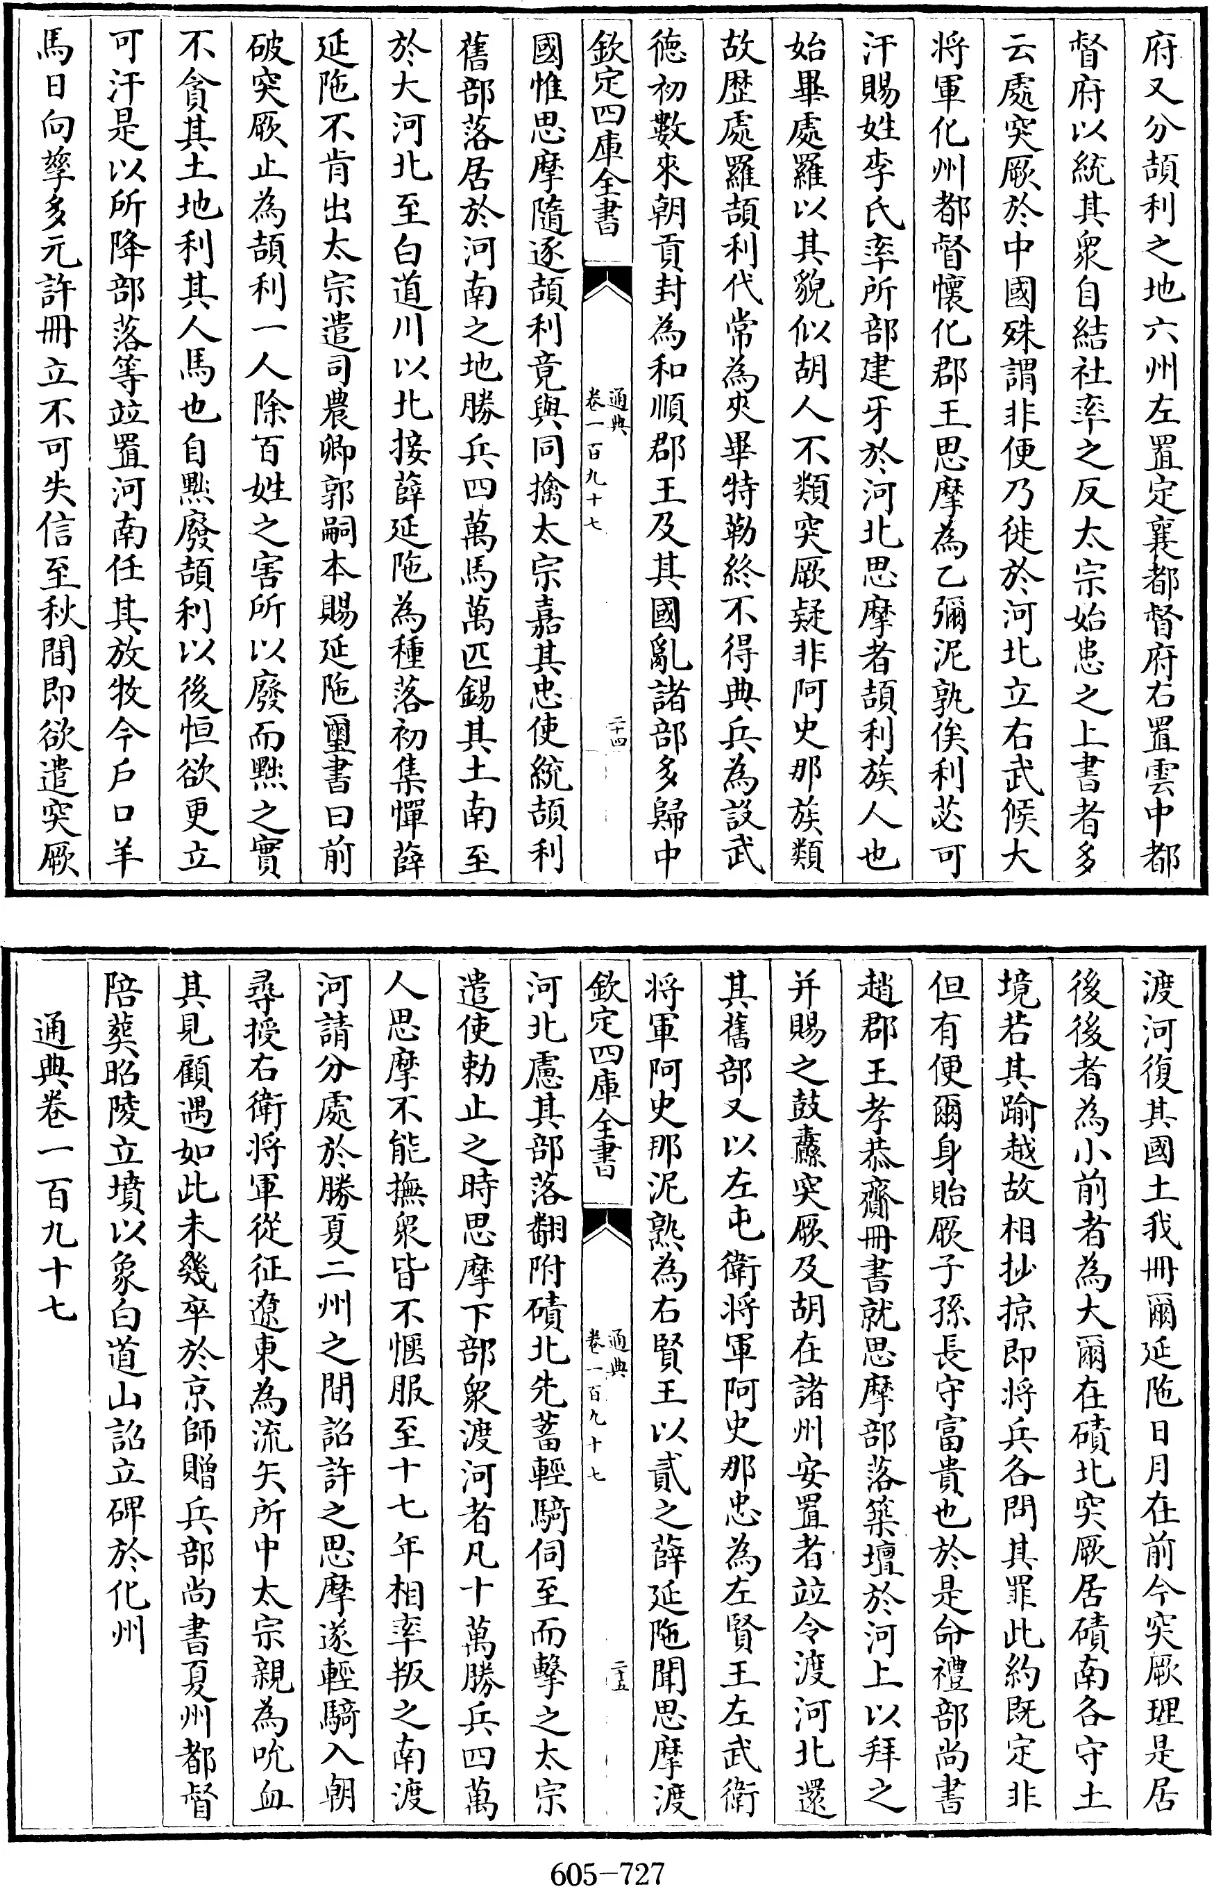 府又分頡利之地六州左置定襄都督府右置雲中都
督府以統其衆自結社率之反太宗始患之上書者多
云處突厥於中國殊謂非便乃徙於河北立右武候大
将軍化州都督懷化郡王思摩為乙彌泥孰俟利苾可
汗賜姓李氏率所部建牙於河北思摩者頡利族人也
始畢處羅以其貌似胡人不類突厥疑非阿史那族類
故歴處羅頡利代常為夾畢特勒終不得典兵為設武
德初數來朝貢封為和順郡王及其國亂諸部多歸中
欽定四庫全書
通典
卷一百九十七
二十四
國惟思摩隨逐頡利竟與同擒太宗嘉其忠使統頡利
舊部落居於河南之地勝兵四萬馬萬匹錫其土南至
於大河北至白道川以北接薛延陁為種落初集憚薛
延陁不肯出太宗遣司農卿郭嗣本賜延陁璽書曰前
破突厥止為頡利一人除百姓之害所以廢而黜之實
不貪其土地利其人馬也自黜廢頡利以後恒欲更立
可汗是以所降部落等竝置河南任其放牧今户口羊
馬日向孳多元許冊立不可失信至秋間即欲遣突厥
渡河復其國土我冊爾延陁日月在前今突厥理是居
後後者為小前者為大爾在磧北突厥居磧南各守土
境若其踰越故相抄掠即将兵各問其罪此約既定非
但有便爾身貽厥子孫長守富貴也於是命禮部尚書
趙郡王孝恭齎冊書就思摩部落築壇於河上以拜之
并賜之鼓纛突厥及胡在諸州安置者竝令渡河北還
其舊部又以左屯衛将軍阿史那忠為左賢王左武衛
将軍阿史那泥熟為右賢王以貳之薛延陁聞思摩渡
欽定四庫全書
通典
卷一百九十七
二十五
河北慮其部落翻附磧北先蓄輕騎伺至而擊之太宗
遣使勑止之時思摩下部衆渡河者凡十萬勝兵四萬
人思摩不能撫衆皆不愜服至十七年相率叛之南渡
河請分處於勝夏二州之間詔許之思摩遂輕騎入朝
尋授右衛将軍從征遼東為流矢所中太宗親為吮血
其見顧遇如此未幾卒於京師贈兵部尚書夏州都督
陪葬昭陵立墳以象白道山詔立碑於化州
通典卷一百九十七
605-727